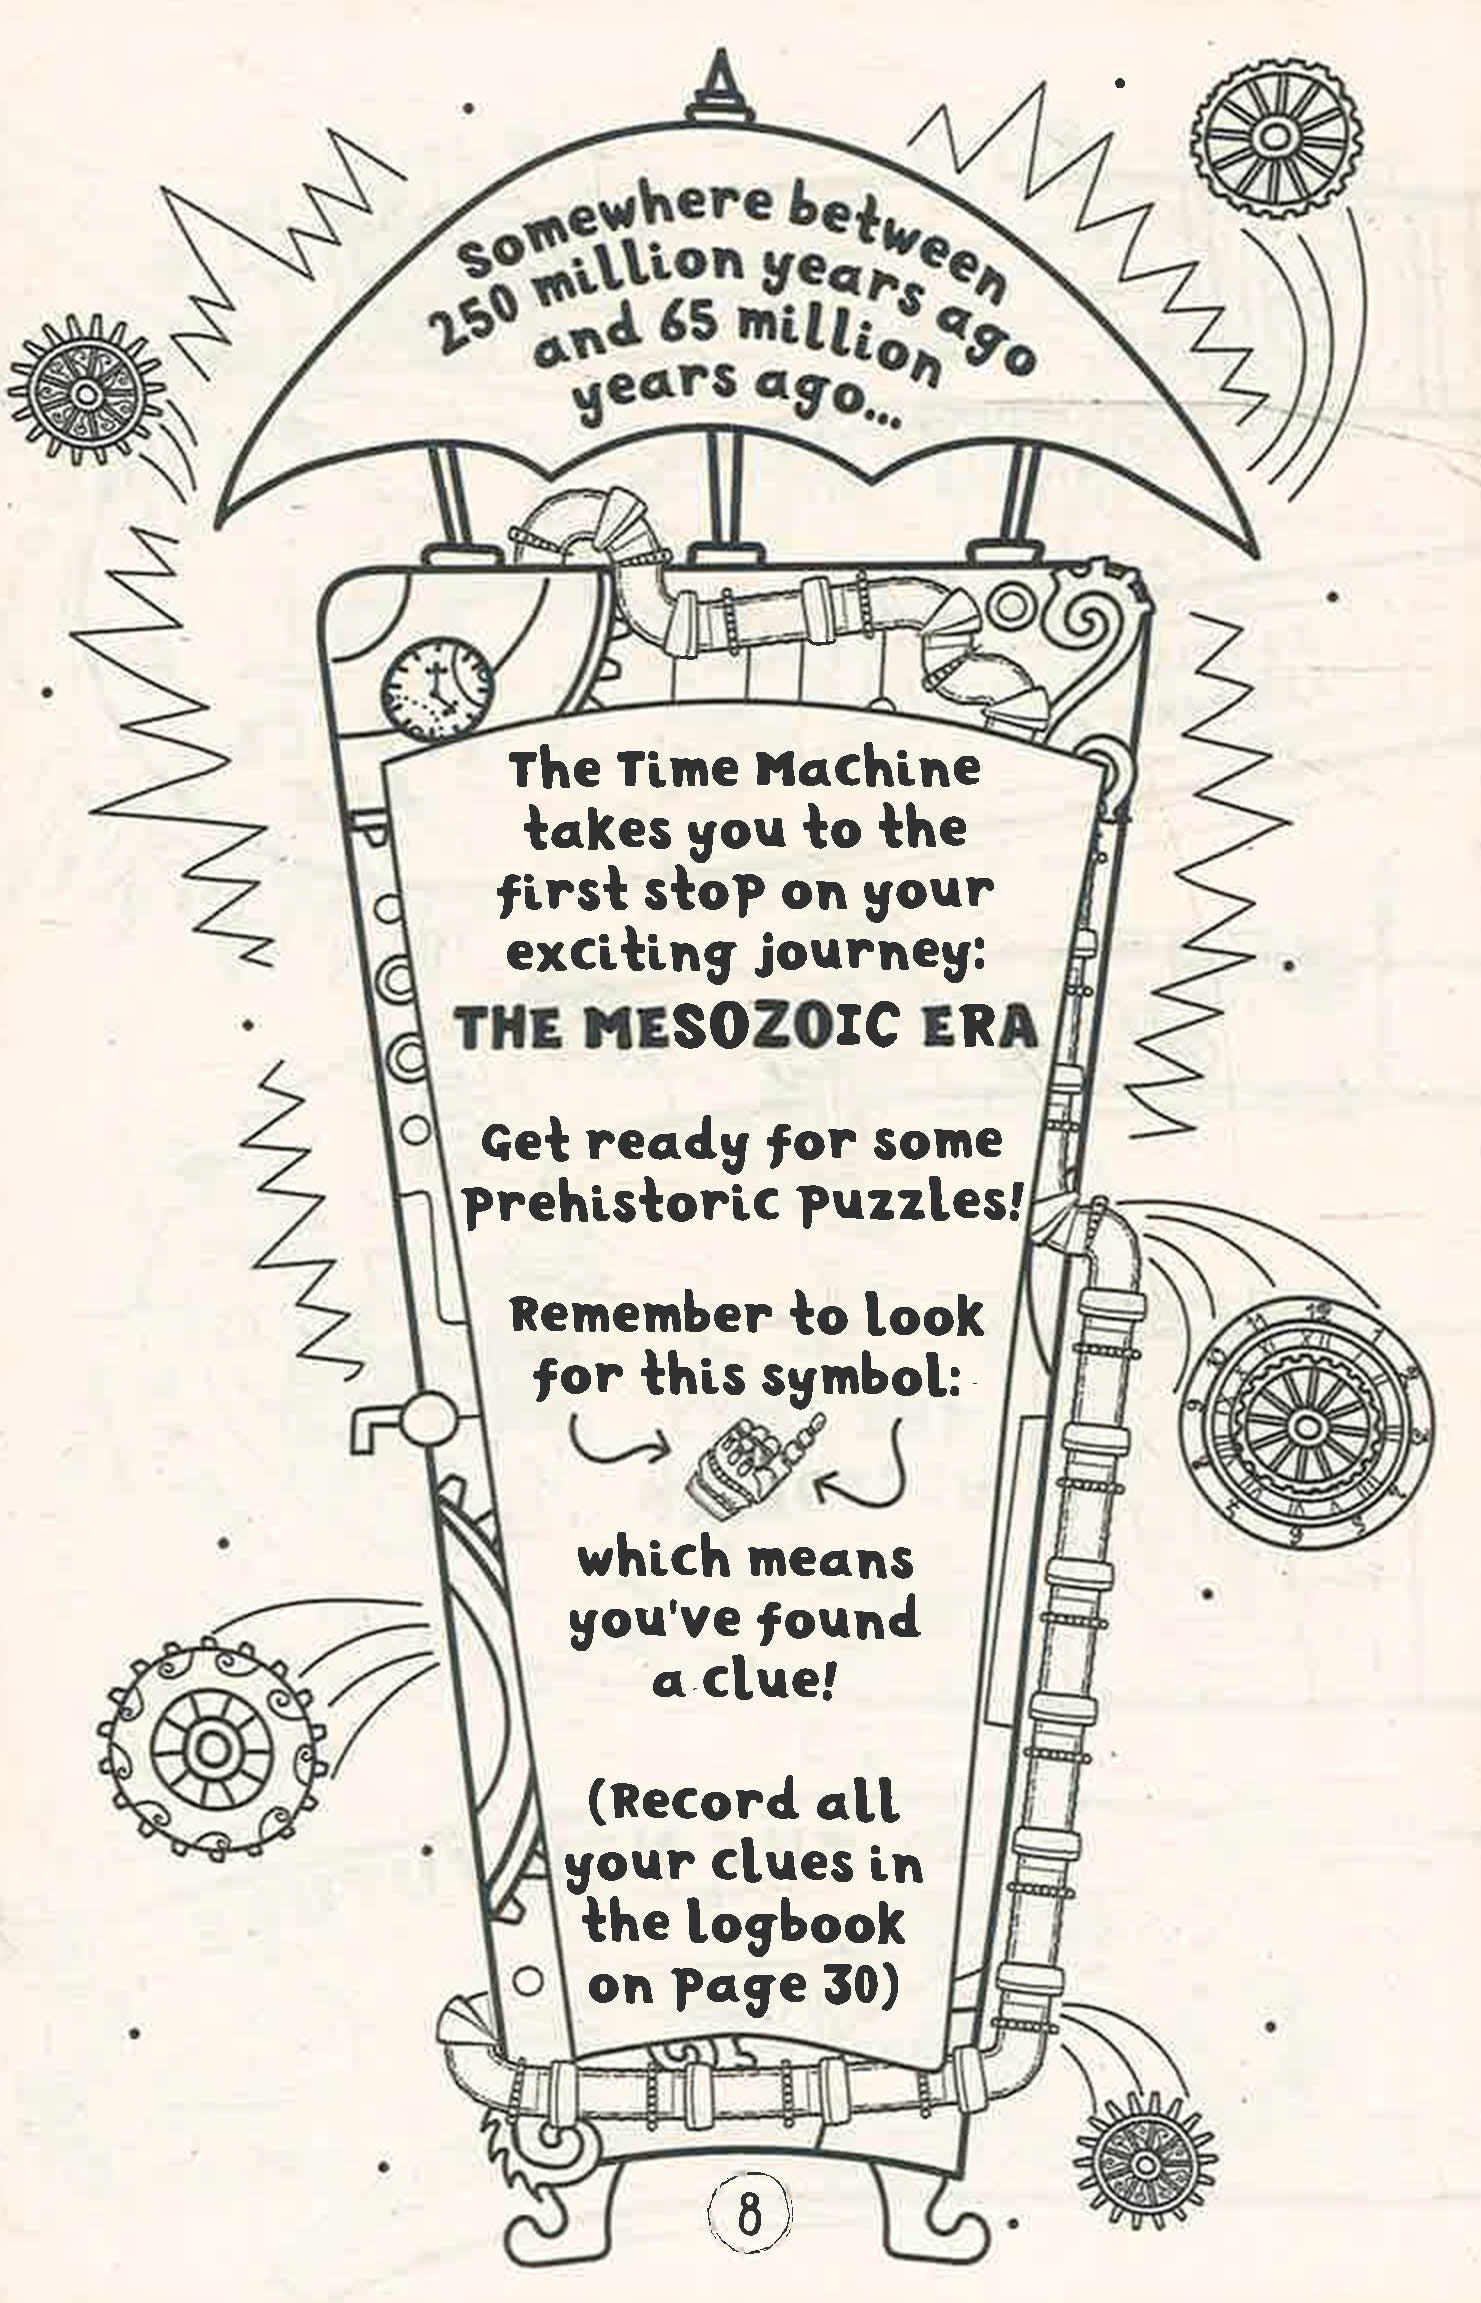 Somewhere between
250 million years ago
and 65 million
years ago...
The Time Machine
takes you to the
first stop on your
exciting journey:
THE MESOZOIC ERA
Get ready for some
prehistoric puzzles!
Remember to look
for this symbol:
which means
you've found
a clue!
(Record all
your clues in
the logbook
on page 30)
8